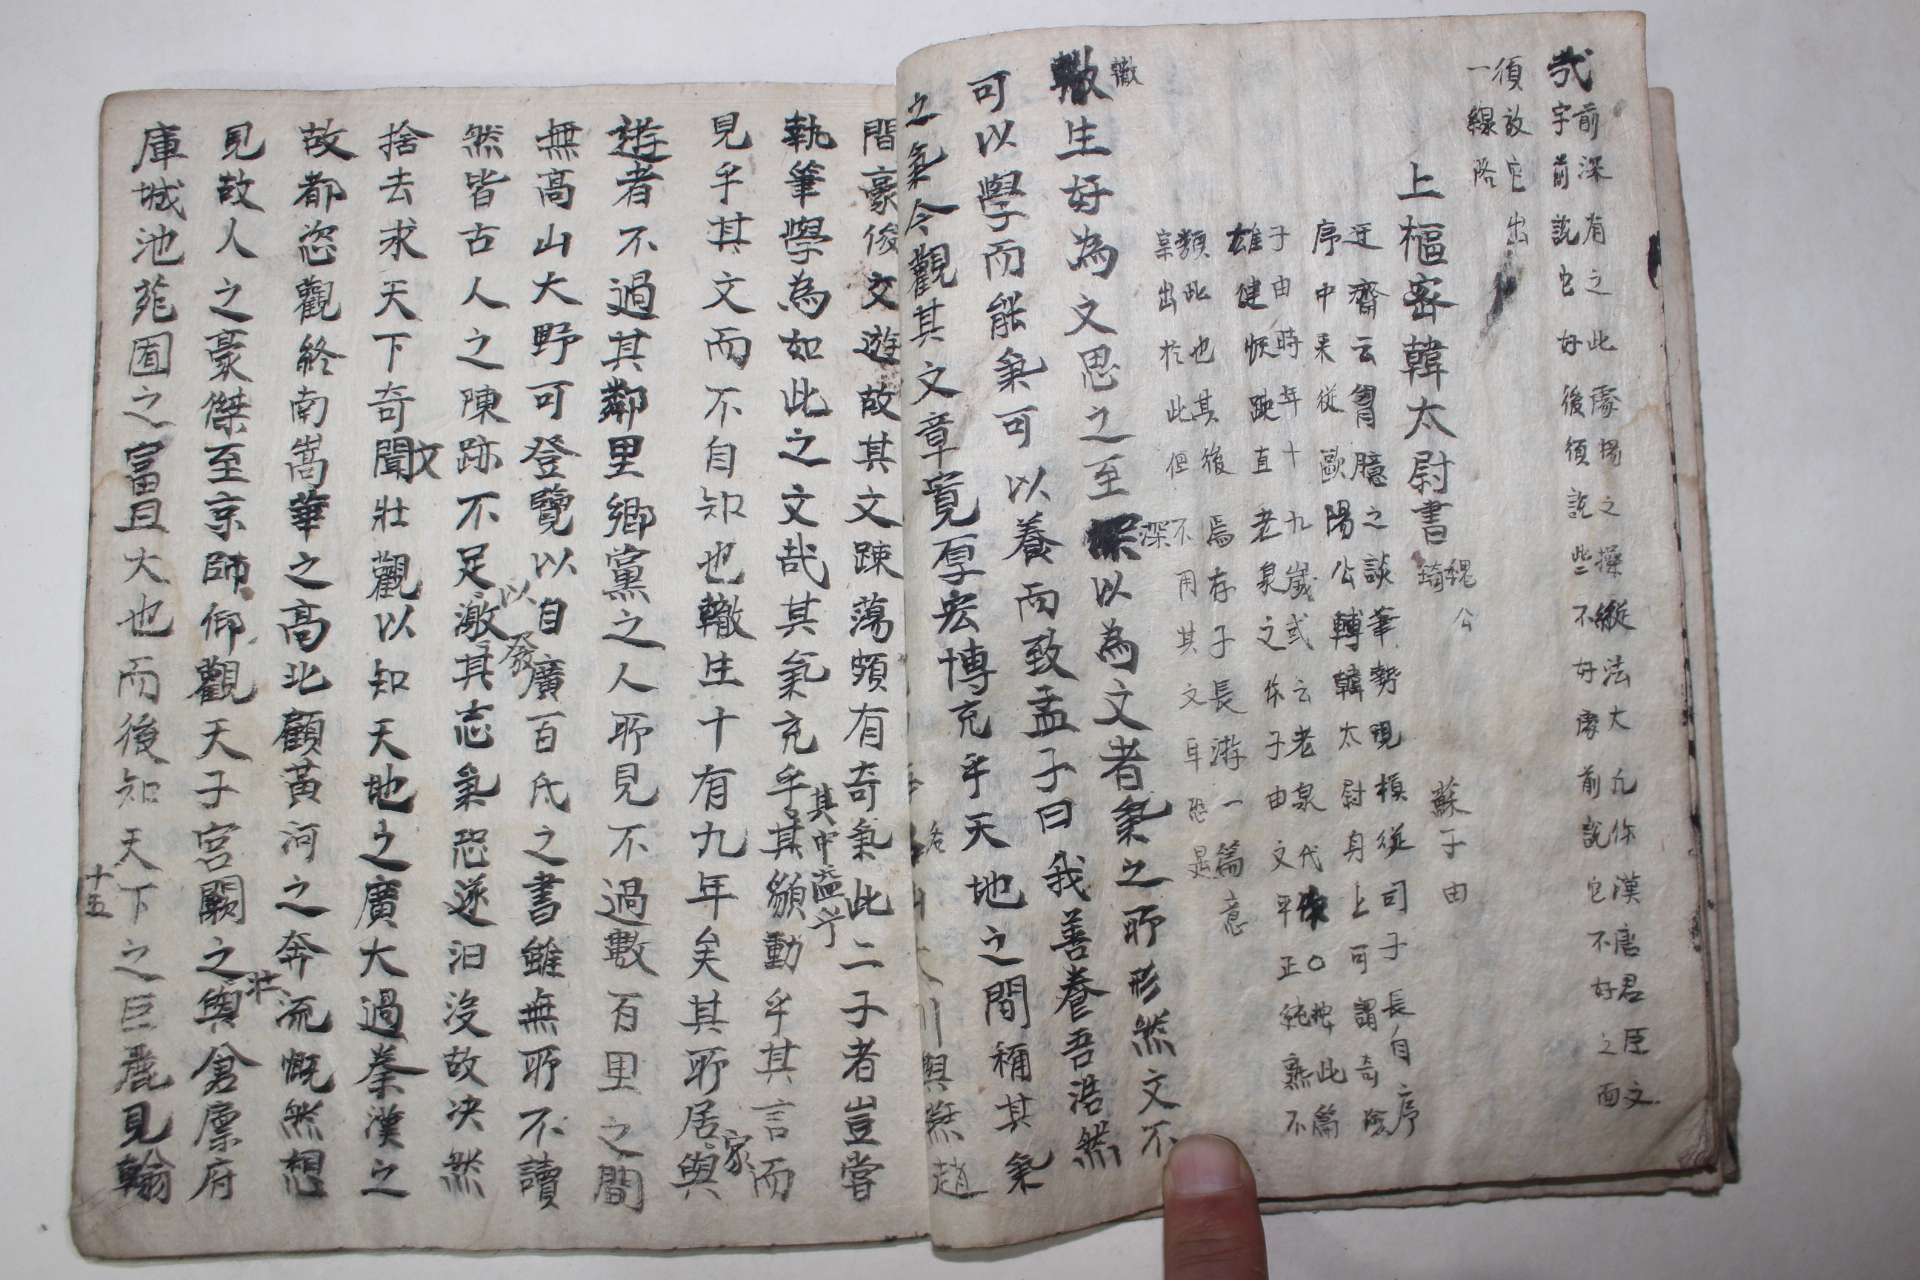 哉
前深有之此處見之操縱法大凡作漢唐君臣文
字前說它好後須說些不好處前說它不好之面
須放它出
一線路
上樞密韓太尉書
魏公
琦
蘇子由
迂齋云胷臆之談筆勢規模從司子長自序
序中來從歐陽公轉韓太尉身上可謂奇險
子由時年十九歲或云老泉代作○按此篇
雄健恢疎直老泉之作子由文平正純熟不
類此也其後焉存子長游一篇意
宲出於此但不用其文耳恐是
轍
轍生好為文思之至深以為文者氣之所形然文不
深
可以學而能氣可以養而致孟子曰我善養吾浩然
之氣今觀其文章寬厚宏博充乎天地之間稱其氣
間豪俊文遊故其文踈蕩頗有奇氣此二子者豈嘗
執筆學為如此之文哉其氣充乎其䫉動乎其言而
其中溢乎
見乎其文而不自知也轍生十有九年矣其所居與
家
遊者不過其鄰里鄉黨之人所見不過數百里之間
無高山大野可登覽以自廣百氏之書雖無所不讀
然皆古人之陳跡不足激其志氣恐遂汩沒故决然
以發
捨去求天下奇聞壯觀以知天地之廣大過秦漢之
文
故都恣觀終南嵩華之高北顧黃河之奔流慨然想
見故人之豪傑至京師仰觀天子宮闕之與倉廩府
壯
庫城池苑囿之富且大也而後知天下之巨麗見翰
十五